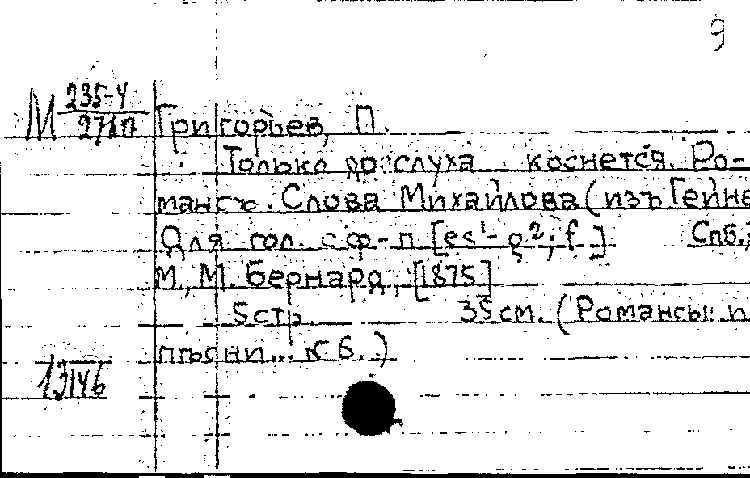 9
М 235-4
Григорьев, П.
Только до слуха коснется. Ро-
мансъ. Слова Михайлова (изъ Гейне
Для гол. с ф-п [es¹-g²; f.] Спб.,
М., М. Бернард, [1875]
5 стр. 35 см. (Романсы и
пѣсни... № 6.)
13146